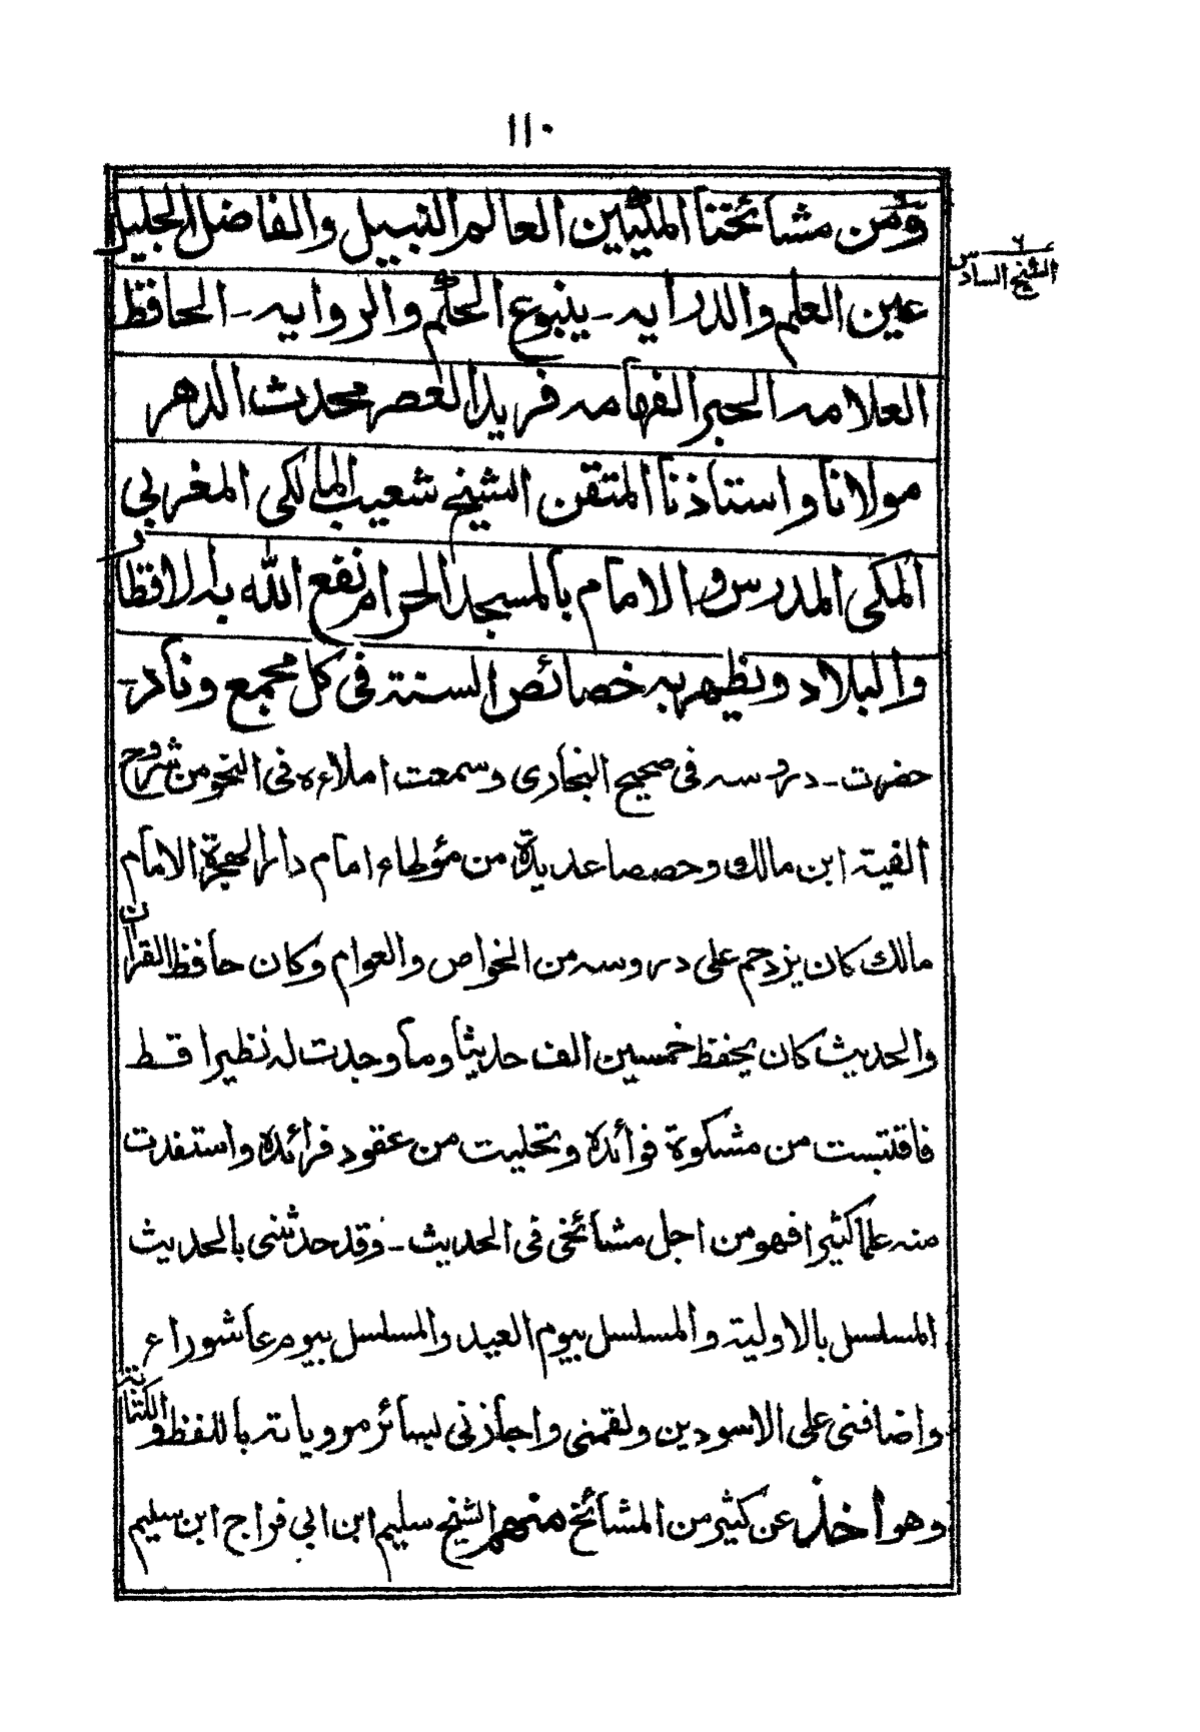 ١١٠
ومن مشائخنا المكيين العالم النبيل والفاضل الجليل
الشيخ السادس
عين العلم والدرايه - ينبوع الحكم والروايه - الحافظ
العلامه الحبر الفهامه فريد العصر محدث الدهر
مولانا واستاذنا المتقن الشيخ شعيب المالكى المغربي
المكى المدرس و الامام بالمسجد الحرام نفع الله به الاقطار
والبلاد ونظهر به خصائص السنة فى كل مجمع وناد -
حضرت - دروسه فى صحيح البخارى وسمعت املاءه فى النحو من شروح
الفية ابن مالك وحصصا عديدة من مؤطاء امام دار الهجرة الامام
مالك كان يزدحم على دروسه من الخواص والعوام وكان حافظ القران
والحديث كان يحفظ خمسين الف حديثا وما وجدت له نظيرا قط
فاقتبست من مشكوة فوائده وتحليت من عقود فرائده واستفدت
منه علما كثيرا فهو من اجل مشائخى فى الحديث - وقد حدثنى بالحديث
المسلسل بالاولية والمسلسل بيوم العيد والمسلسل بيوم عاشوراء
واضافنى على الاسودين ولقمنى واجازنى لسائر مروياته باللفظ والكتابة
وهو اخذ عن كثير من المشائخ منهم الشيخ سليم ابن ابي فراج ابن سليم